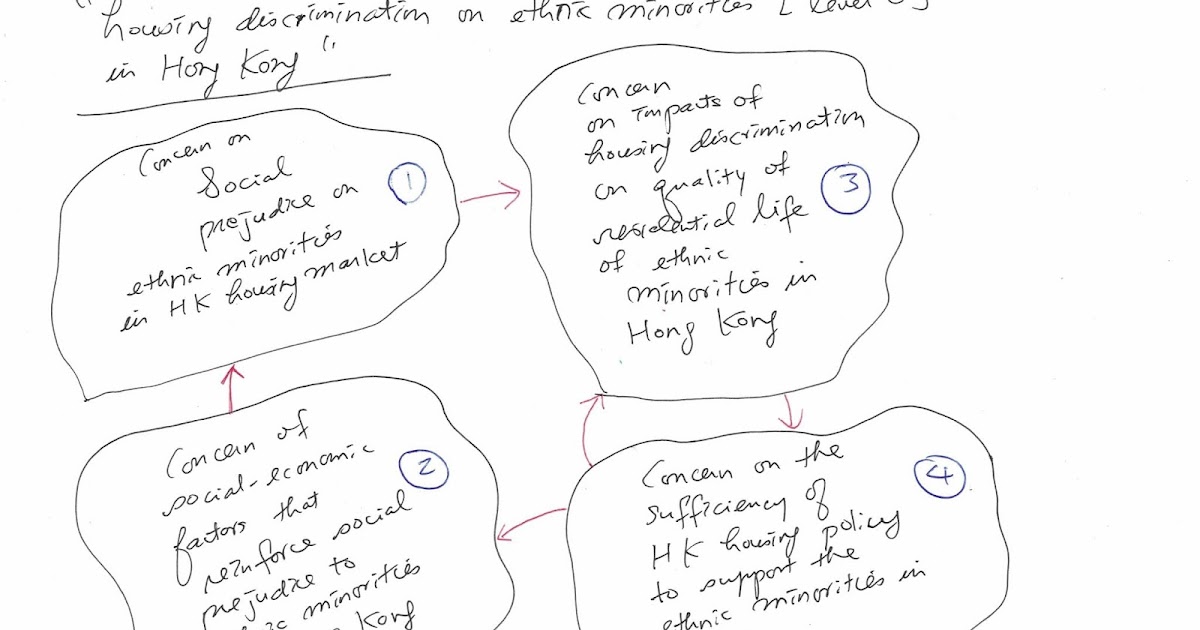 housing discrimination on ethnic minorities [level
in Hong Kong".
Concern on
Social
prejudice on
ethnic minorities
in HK housing market
1
Concern
on impacts of
housing discrimination
on quality of
residential life
of ethnic
minorities in
Hong Kong
3
Concern of
social-economic
factors that
reinforce social
prejudice to
minorities
Kong
2
Concern on the
sufficiency of
HK housing policy
to support the
ethnic minorities in
4